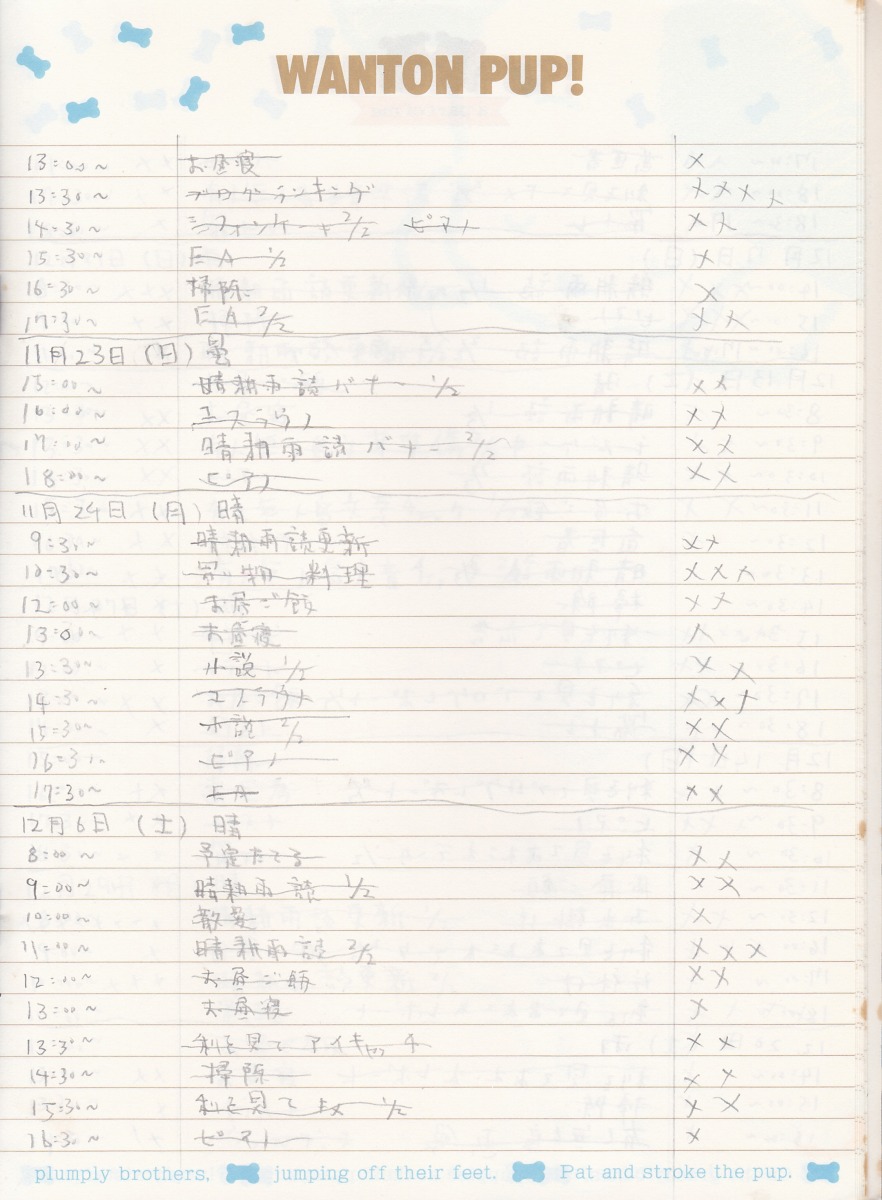 WANTON PUP!
13:00~ お昼寝 ×
13:30~ ブログランキング ××××
14:30~ シフォンケーキ 2/2 ピアノ ××
15:30~ EA 1/2 ×
16:30~ 掃除 ×
17:30~ EA 2/2 ××
11月23日(日) 曇
15:00~ 晴耕雨読バナー 1/2 ××
16:00~ エスラウノ ××
17:00~ 晴耕雨読バナー 2/2 ××
18:00~ ピアノ ××
11月24日(月) 晴
9:30~ 晴耕雨読更新 ××
10:30~ 買い物 料理 ×××
12:00~ お昼ご飯 ××
13:00~ お昼寝 ×
13:30~ 小説 1/2 ××
14:30~ エスラウノ ×××
15:30~ 小説 2/2 ××
16:30~ ピアノ ××
17:30~ EA ××
12月6日(土) 晴
8:00~ 予定たてる ××
9:00~ 晴耕雨読 1/2 ××
10:00~ 散髪 ×
11:00~ 晴耕雨読 2/2 ×××
12:00~ お昼ご飯 ××
13:00~ お昼寝 ×
13:30~ 私を見て アイキャッチ ××
14:30~ 掃除 ××
15:30~ 私を見て 1/2 ××
16:30~ ピアノ ×
plumply brothers, jumping off their feet. Pat and stroke the pup.